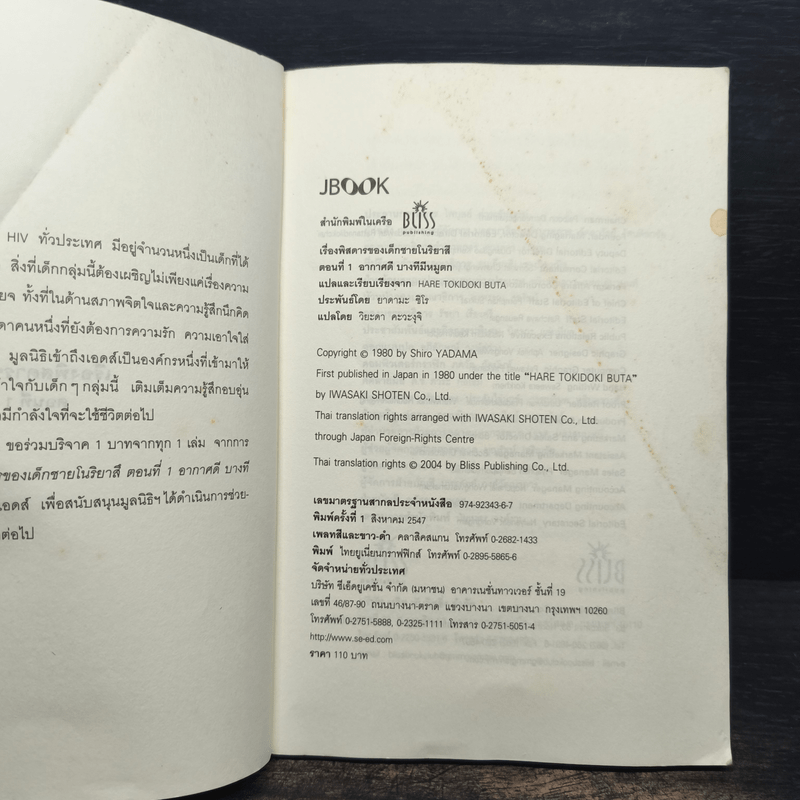 HIV ทั่วประเทศ มีอยู่จำนวนหนึ่งเป็นเด็กที่ได้
สิ่งที่เด็กกลุ่มนี้ต้องเผชิญไม่เพียงแค่เรื่องความ
ทั้งที่ในด้านสภาพจิตใจและความรู้สึกนึกคิด
คนหนึ่งที่ยังต้องการความรัก ความเอาใจใส่
มูลนิธิเข้าถึงเอดส์เป็นองค์กรหนึ่งที่เข้ามาให้
ใจกับเด็กๆกลุ่มนี้ เติมเต็มความรู้สึกอบอุ่น
มีกำลังใจที่จะใช้ชีวิตต่อไป
ขอร่วมบริจาค 1 บาทจากทุก 1 เล่ม จากการ
ของเด็กชายโนริยาสึ ตอนที่ 1 อากาศดี บางที
เอดส์ เพื่อสนับสนุนมูลนิธิฯได้ดำเนินการช่วย-
ต่อไป
JBOOK
สำนักพิมพ์ในเครือ BLISS publishing
เรื่องพิสดารของเด็กชายโนริยาสึ
ตอนที่ 1 อากาศดี บางทีมีหมูตก
แปลและเรียบเรียงจาก HARE TOKIDOKI BUTA
ประพันธ์โดย ยาดามะ ชิโร
แปลโดย วิยะดา คะวะงุจิ
Copyright © 1980 by Shiro YADAMA
First published in Japan in 1980 under the title "HARE TOKIDOKI BUTA"
by IWASAKI SHOTEN Co., Ltd.
Thai translation rights arranged with IWASAKI SHOTEN Co., Ltd.
through Japan Foreign-Rights Centre
Thai translation rights © 2004 by Bliss Publishing Co., Ltd.
เลขมาตรฐานสากลประจำหนังสือ 974-92343-6-7
พิมพ์ครั้งที่ 1 สิงหาคม 2547
เพลทสีและขาว-ดำ คลาสิคสแกน โทรศัพท์ 0-2682-1433
พิมพ์ ไทยยูเนี่ยนกราฟฟิกส์ โทรศัพท์ 0-2895-5865-6
จัดจำหน่ายทั่วประเทศ
บริษัท ซีเอ็ดยูเคชั่น จำกัด (มหาชน) อาคารเนชั่นทาวเวอร์ ชั้นที่ 19
เลขที่ 46/87-90 ถนนบางนา-ตราด แขวงบางนา เขตบางนา กรุงเทพฯ 10260
โทรศัพท์ 0-2751-5888, 0-2325-1111 โทรสาร 0-2751-5051-4
http://www.se-ed.com
ราคา 110 บาท